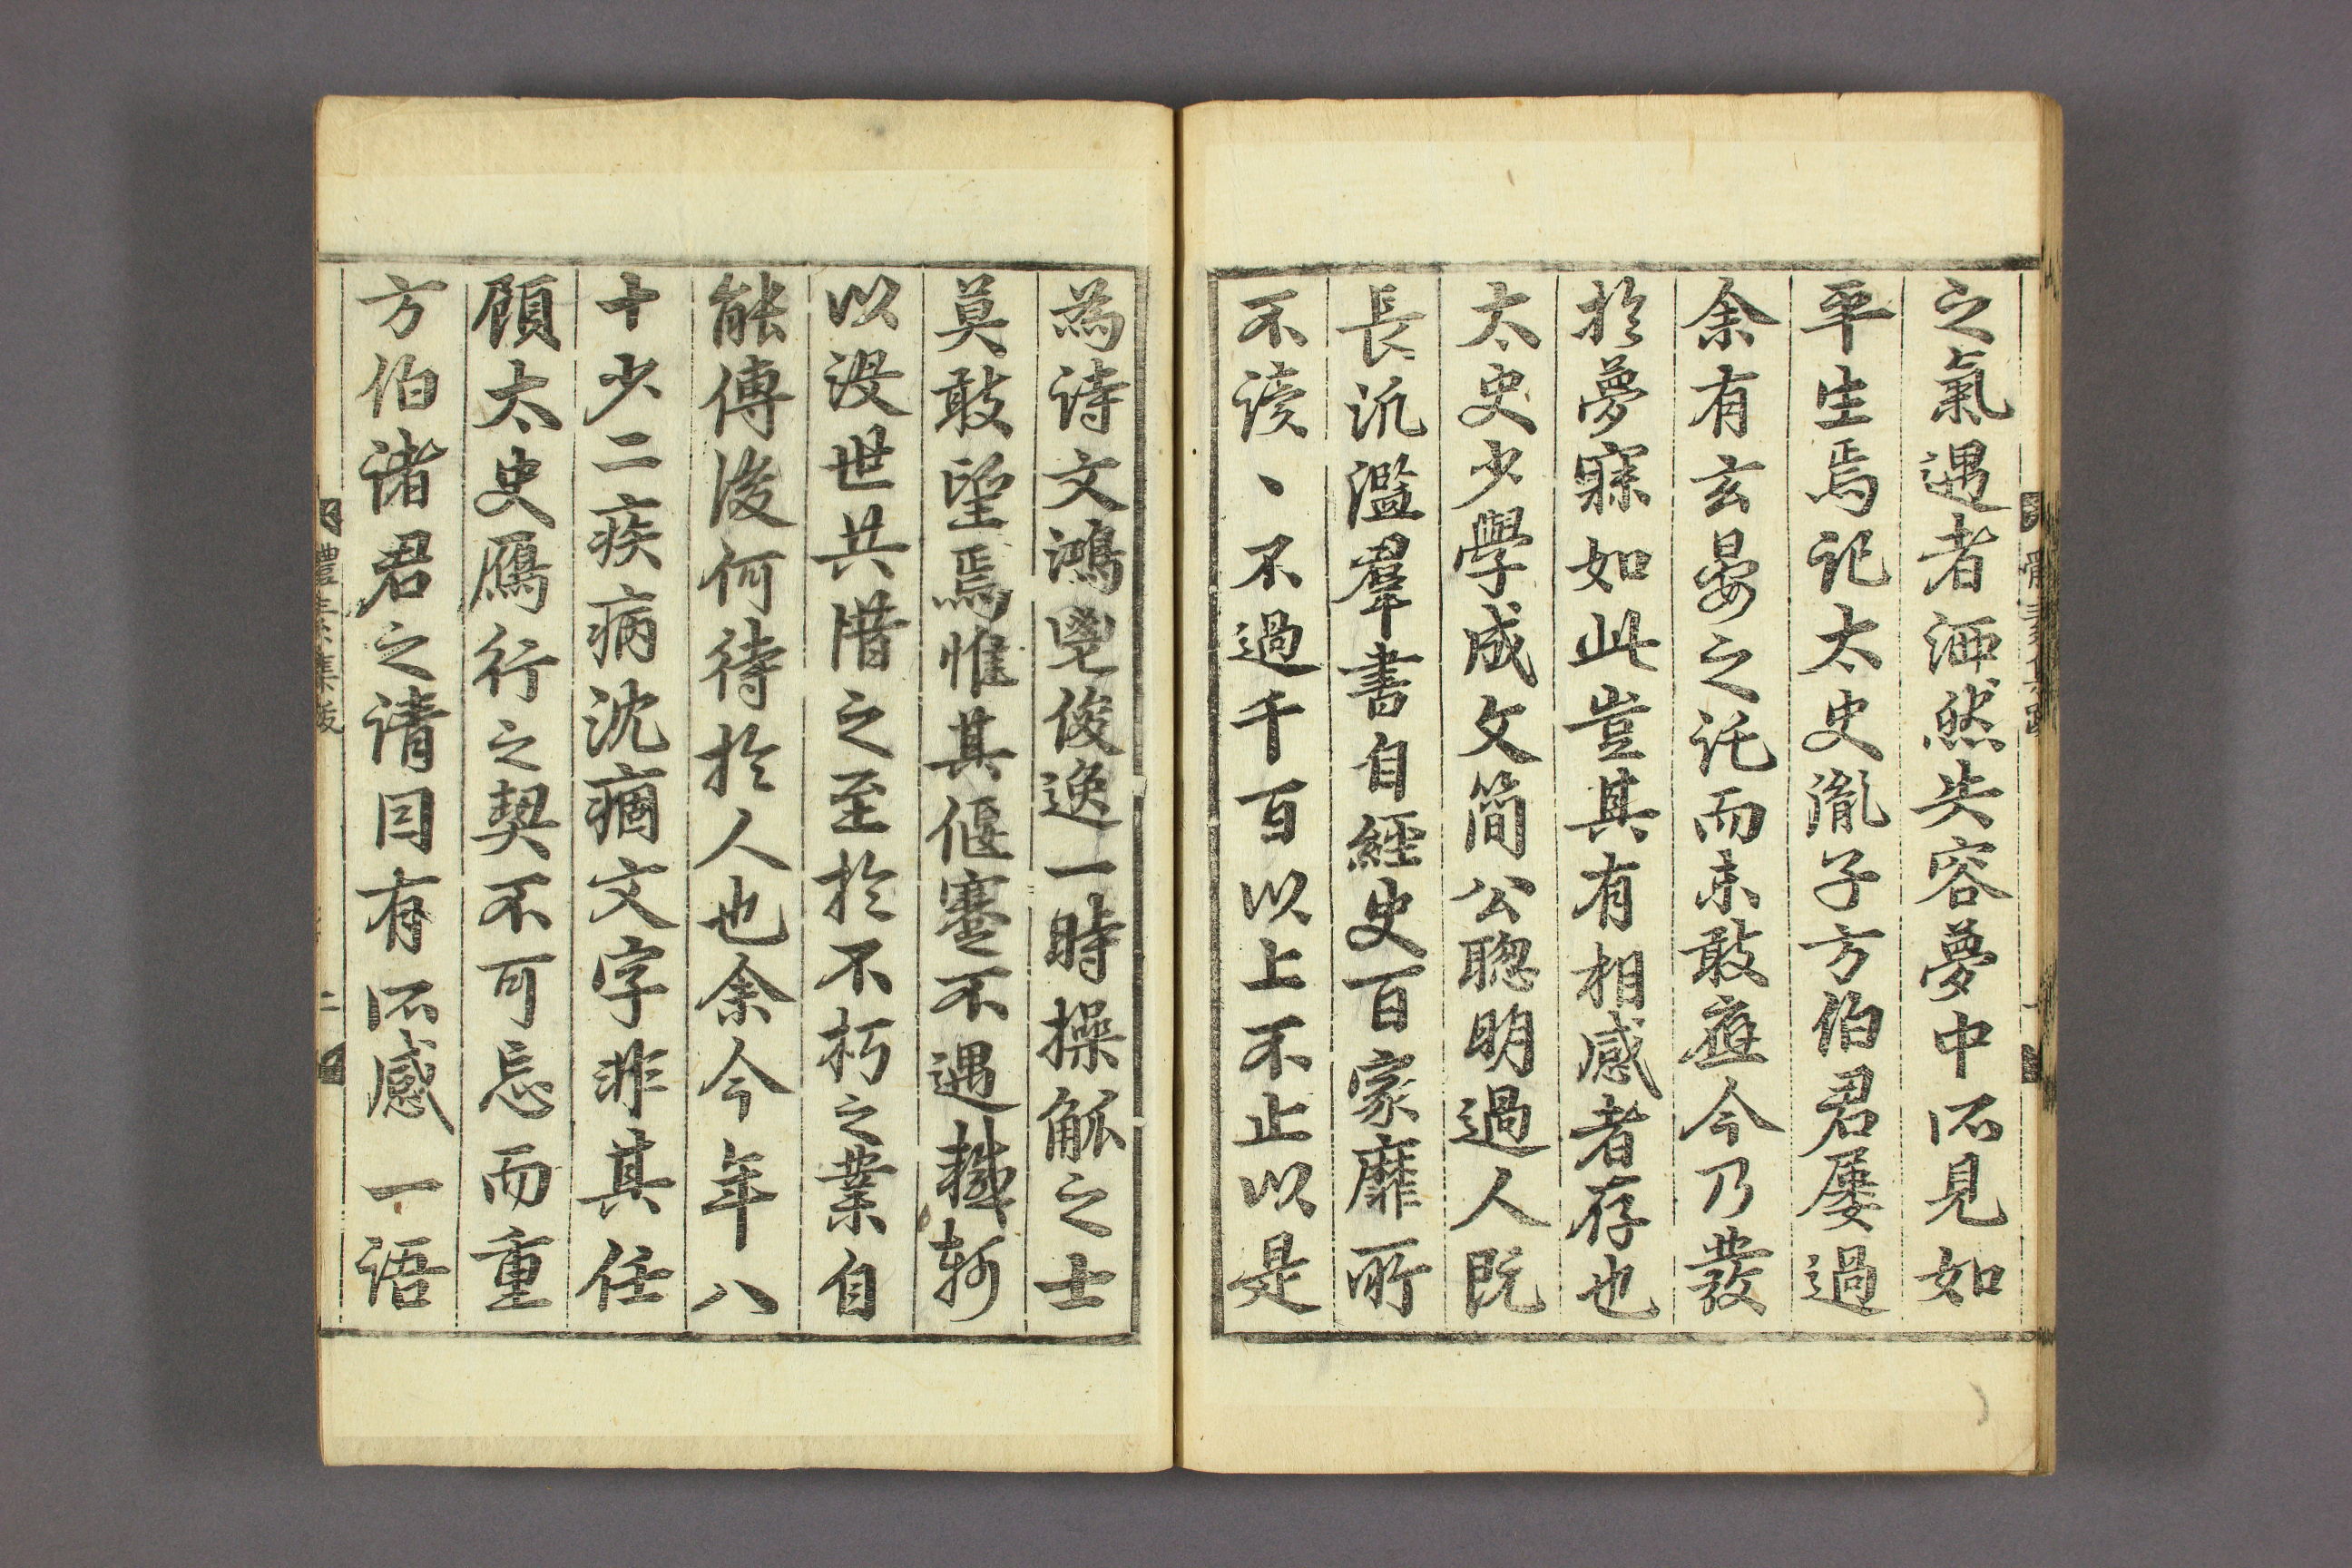 之氣遇者洒然失容夢中所見如
平生焉記太史胤子方伯君屢過
余有玄晏之託而未敢應今乃發
於夢寐如此豈其有相感者存也
太史少學成文簡公聰明過人既
長汎濫羣書自經史百家靡所
不讀、不過千百以上不止以是
為詩文鴻鬯俊逸一時操觚之士
莫敢望焉惟其偃蹇不遇轗軻
以沒世共惜之至於不朽之業自
能傳後何待於人也余今年八
十少二疾病沈痼文字非其任
顧太史鴈行之契不可忘而重
方伯諸君之請因有所感一語